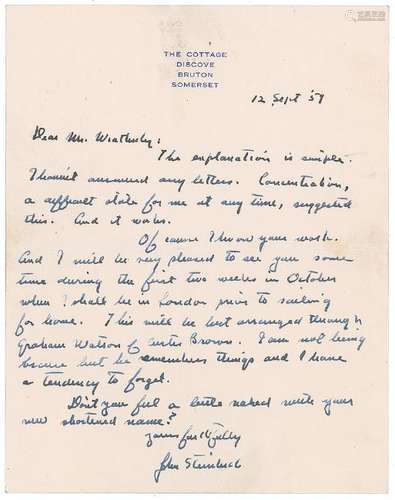 THE COTTAGE
DISCOVE
BRUTON
SOMERSET
12 Sept 59
Dear Mr. Weatherby:
The explanation is simple.
I haven't answered any letters. Concentration,
a difficult state for me at any time, suggested
this. And it works.
Of course I know your work.
And I will be very pleased to see you some
time during the first two weeks in October
when I shall be in London prior to sailing
for home. This will be best arranged through
Graham Watson of Curtis Brown. I am not being
but he remembers things and I have
a tendency to forget.
Don't you feel a little naked with your
new shortened name?
yours faithfully
John Steinbeck